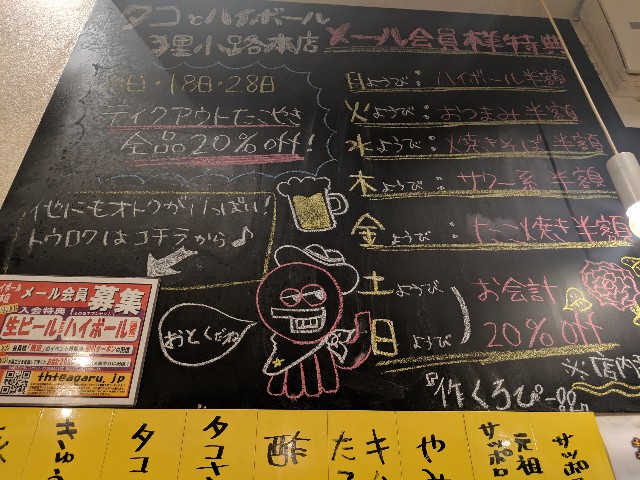 タコとハイボール
狸小路本店 メール会員様特典
8日・18日・28日
テイクアウトたこやき
全品20%off!
他にもオトクがいっぱい!
トウロクはコチラから♪
月ようび:ハイボール半額
火ようび:おつまみ半額
水ようび:焼きそば半額
木ようび:サワー系半額
金ようび:たこ焼き半額
土ようび
日ようび
お会計
20%off!
おとくだね
メール会員募集
入会特典
生ビール ハイボール
thteagaru.jp
『作くろぴー』
きゅう
タコ
タコさ
酢
キム
たこ
やみ
元祖
サッポロ
サッポロ